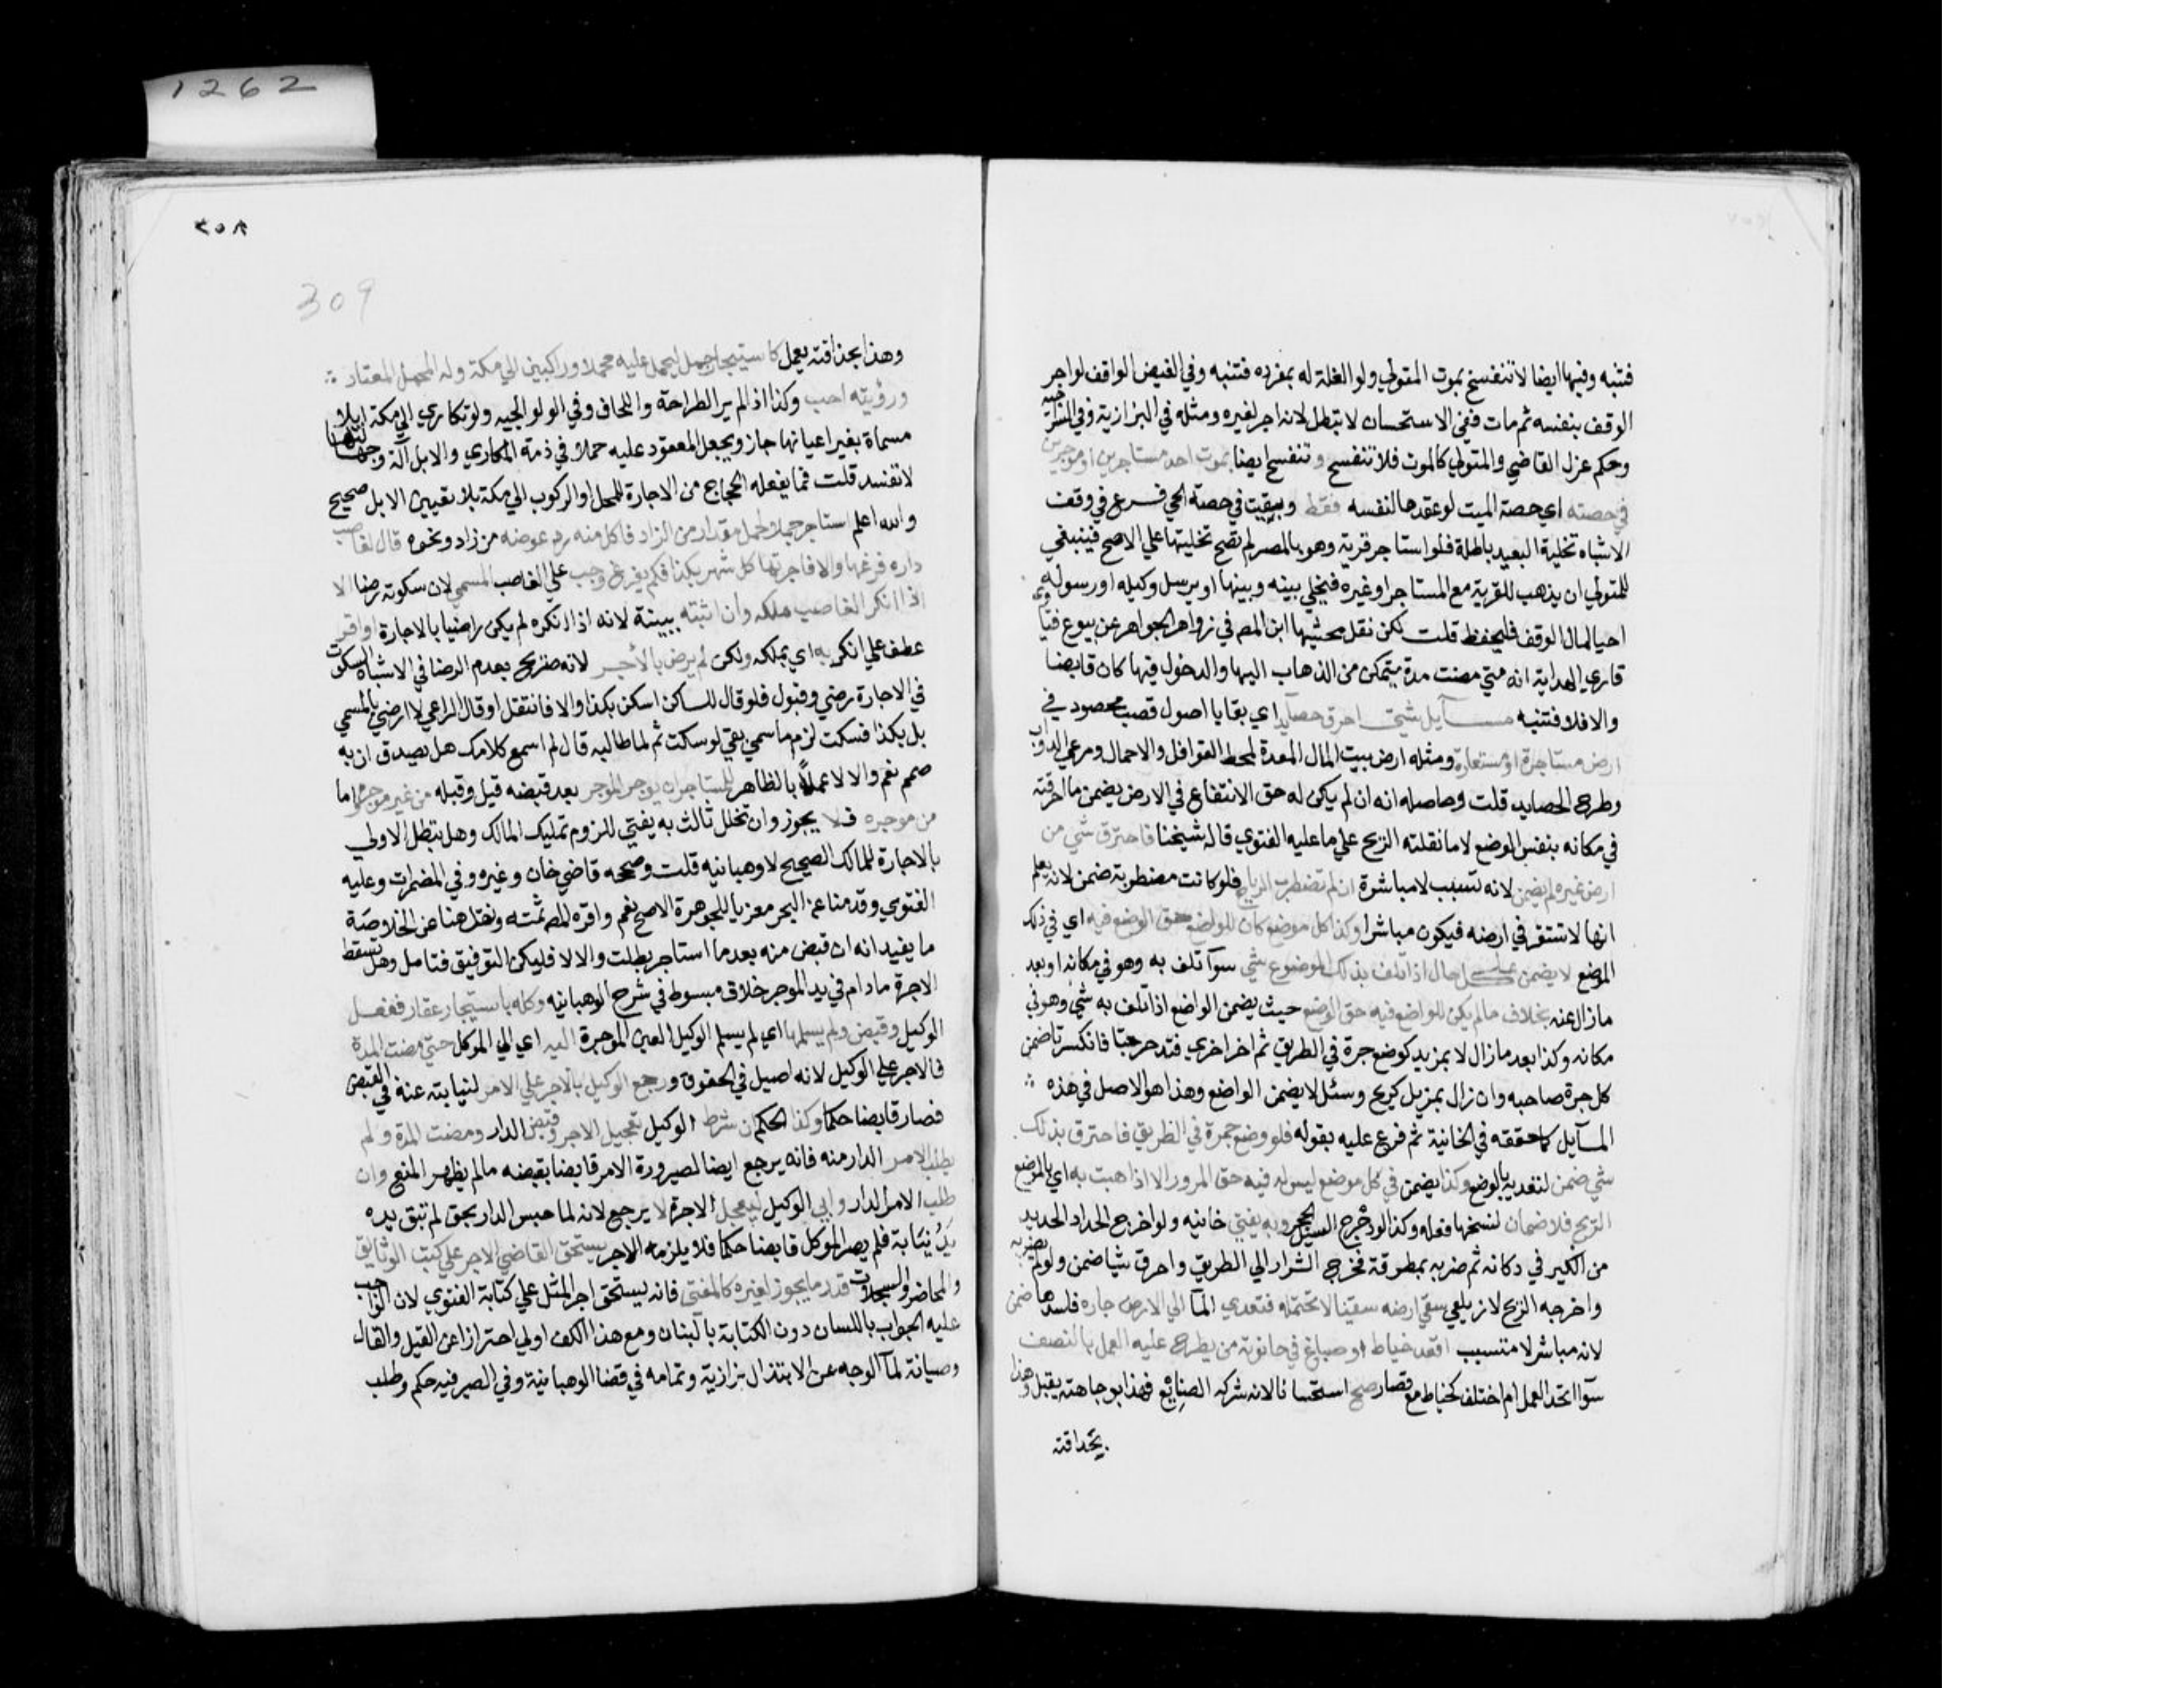 فتنبه وفيها ايضا لا تنفسخ بموت المتولي ولو الغلة له بمفرده فتنبه وفي الفيض الواقف لو اجر
الوقف بنفسه ثم مات ففي الاستحسان لا تبطل لانه اجر لغيره ومثله في البزازية وفي السراجيه
وحكم عزل القاضي والمتولي كالموت فلا تنفسخ وتنفسخ ايضا بموت احد مستاجرين او موجرين
في حصته اي حصة الميت لو عقدها لنفسه فقط وبقيت في حصة الحي فرع في وقف
الاشباه تخلية البعيد باطلة فلو استاجر قرية وهو بالمصر لم تصح تخليتها علي الاصح فينبغي
للمتولي ان يذهب للقرية مع المستاجر او غيره فيخلي بينه وبينها او يرسل وكيله او رسوله
احيا لمال الوقف فليحفظ قلت لكن نقل محشيها ابن المص في زواهر الجواهر عن بيوع فتاوي
قاري الهداية انه متي مضت مدة يتمكن من الذهاب اليها والدخول فيها كان قابضا
والا فلا فتنبه مسايل شتي احرق حصايد اي بقايا اصول قصب محصود في
ارض مستاجرة او مستعارة ومثله ارض بيت المال المعدة لمحط القوافل والاحمال ومرعي الدواب
وطرح الحصايد قلت وحاصله انه ان لم يكن له حق الانتفاع في الارض يضمن ما احرقته
في مكانه بنفس الوضع لا ما نقلته الريح علي ما عليه الفتوي قاله شيخنا فاحترق شي من
ارض غيره لم يضمن لانه تسبب لا مباشرة ان لم تضطرب الرياح فلو كانت مضطربة ضمن لانه يعلم
انها لا تستقر في ارضه فيكون مباشرا وكذا كل موضع كان للواضع حق الوضع فيه اي في ذلك
الموضع لا يضمن علي كل حال اذا تلف بذلك الموضوع شي سوآ تلف به وهو في مكانه او بعد
ما زال عنه بخلاف ما لم يكن للواضع فيه حق الوضع حيث يضمن الواضع اذا تلف به شي وهو في
مكانه وكذا بعد ما زال لا بمزيد كوضع جرة في الطريق ثم اخر اخري فتدحرجتا فانكسرتا ضمن
كل جرة صاحبه وان زال بمزيل كريح وسئل لا يضمن الواضع وهذا هو الاصل في هذه ∴
المسآيل كما حققه في الخانية ثم فرع عليه بقوله فلو وضع جمرة في الطريق فاحترق بذلك
شي ضمن لتعديه بالوضع وكذا يضمن في كل موضع ليس له فيه حق المرور الا اذا هبت به اي بالموضع
الريح فلا ضمان لنسخها فعله وكذا لو دحرج السيل الحجر وبه يفتي خانيه ولو اخرج الحداد الحديد
من الكير في دكانه ثم ضربه بمطرقة فخرج الشرار الي الطريق واحرق شيا ضمن ولو لم يضربه
واخرجه الريح لا زيلعي سقي ارضه سقيا لا تحتمله فتعدي المآ الي الارض جاره فلسدها ضمن
لانه مباشر لا متسبب اقعد خياط او صباغ في حانوته من يطرح عليه العمل بالنصف
سوآ اتحد العمل ام اختلف كخياط مع قصار صح استحسانا لانه شركه الصنايع فهذا بوجاهته يقبل وهذا
بحذاقته
1262
٢٥٨
309
وهذا بحذاقته يعمل كاستيجار جمل ليحمل عليه محملا وراكبين الي مكة وله المحمل المعتاد ∴
ورؤيته احب وكذا اذا لم ير الطراحة واللحاف وفي الولوالجيه ولو تكاري الي مكة ابلا
مسماة بغير اعيانها جاز ويجعل المعقود عليه حملا في ذمة المكاري والابل آلة وجهالتها
لا تفسد قلت فما يفعله الحجاج من الاجارة للمحل او الركوب الي مكة بلا تعيين الابل صحيح
والله اعلم استاجر جملا لحمل مقدار من الزاد فاكل منه رد عوضه من زاد ونحوه قال لغاصب
داره فرغها والا فاجرتها كل شهر بكذا فلم يفرغ وجب علي الغاصب المسمي لان سكوته رضا الا
اذا انكر الغاصب ملكه وان اثبته ببينة لانه اذا انكره لم يكن راضيا بالاجارة او اقر
عطف علي انكر به اي بملكه ولكن لم يرض بالأجر لانه صريح بعدم الرضا في الاشباه السكوت
في الاجارة رضي وقبول فلو قال للساكن اسكن بكذا والا فانتقل او قال الراعي لا ارضي بالمسمي
بل بكذا فسكت لزم ما سمي بقي لو سكت ثم لما طالبه قال لم اسمع كلامك هل يصدق ان به
صمم نعم والا لا عملاً بالظاهر للمستاجر ان يوجر الموجر بعد قبضه قيل وقبله من غير موجره واما
من موجره فلا يجوز وان تخلل ثالث به يفتي للزوم تمليك المالك وهل تبطل الاولي
بالاجارة للمالك الصحيح لا وهبانيه قلت وصححه قاضي خان وغيره وفي المضمرات وعليه
الفتوي وقدمنا عن البحر معزيا للجوهرة الاصح نعم واقره المص ثمته ونقل هنا عن الخلاصة
ما يفيد انه ان قبض منه بعد ما استاجر بطلت والا لا فليكن التوفيق فتامل وهل تسقط
الاجرة ما دام في يد الموجر خلاف مبسوط في شرح الوهبانيه وكله باستيجار عقار ففعل
الوكيل وقبض ولم يسلمها اي لم يسلم الوكيل العين الموجرة اليه اي الي الموكل حتي مضت المدة
فالاجر علي الوكيل لانه اصيل في الحقوق ورجع الوكيل بالاجر علي الامر لنيابته عنه في القبض
فصار قابضا حكما وكذا الحكم ان شرط الوكيل تعجيل الاجر وقبض الدار ومضت المدة ولم
يطلب الامر الدار منه فانه يرجع ايضا لصيرورة الامر قابضا بقبضه ما لم يظهر المنع وان
طلب الامر الدار وابي الوكيل ليعجل الاجرة لا يرجع لانه لما حبس الدار بحق لم تبق يده
يَدُ نِيَابة فلم يصر الموكل قابضا حكما فلا يلزمه الاجر يستحق القاضي الاجر علي كتب الوثايق
والمحاضر والسجلات قدر ما يجوز لغيره كالمفتي فانه يستحق اجر المثل علي كتابة الفتوي لان الواجب
عليه الجواب باللسان دون الكتابة بالبنان ومع هذا الكف اولي احترازا عن القيل والقال
وصيانة لمآ الوجه عن الابتذال بزازية وتمامه في قضا الوهبانية وفي الصيرفيه حكم وطلب